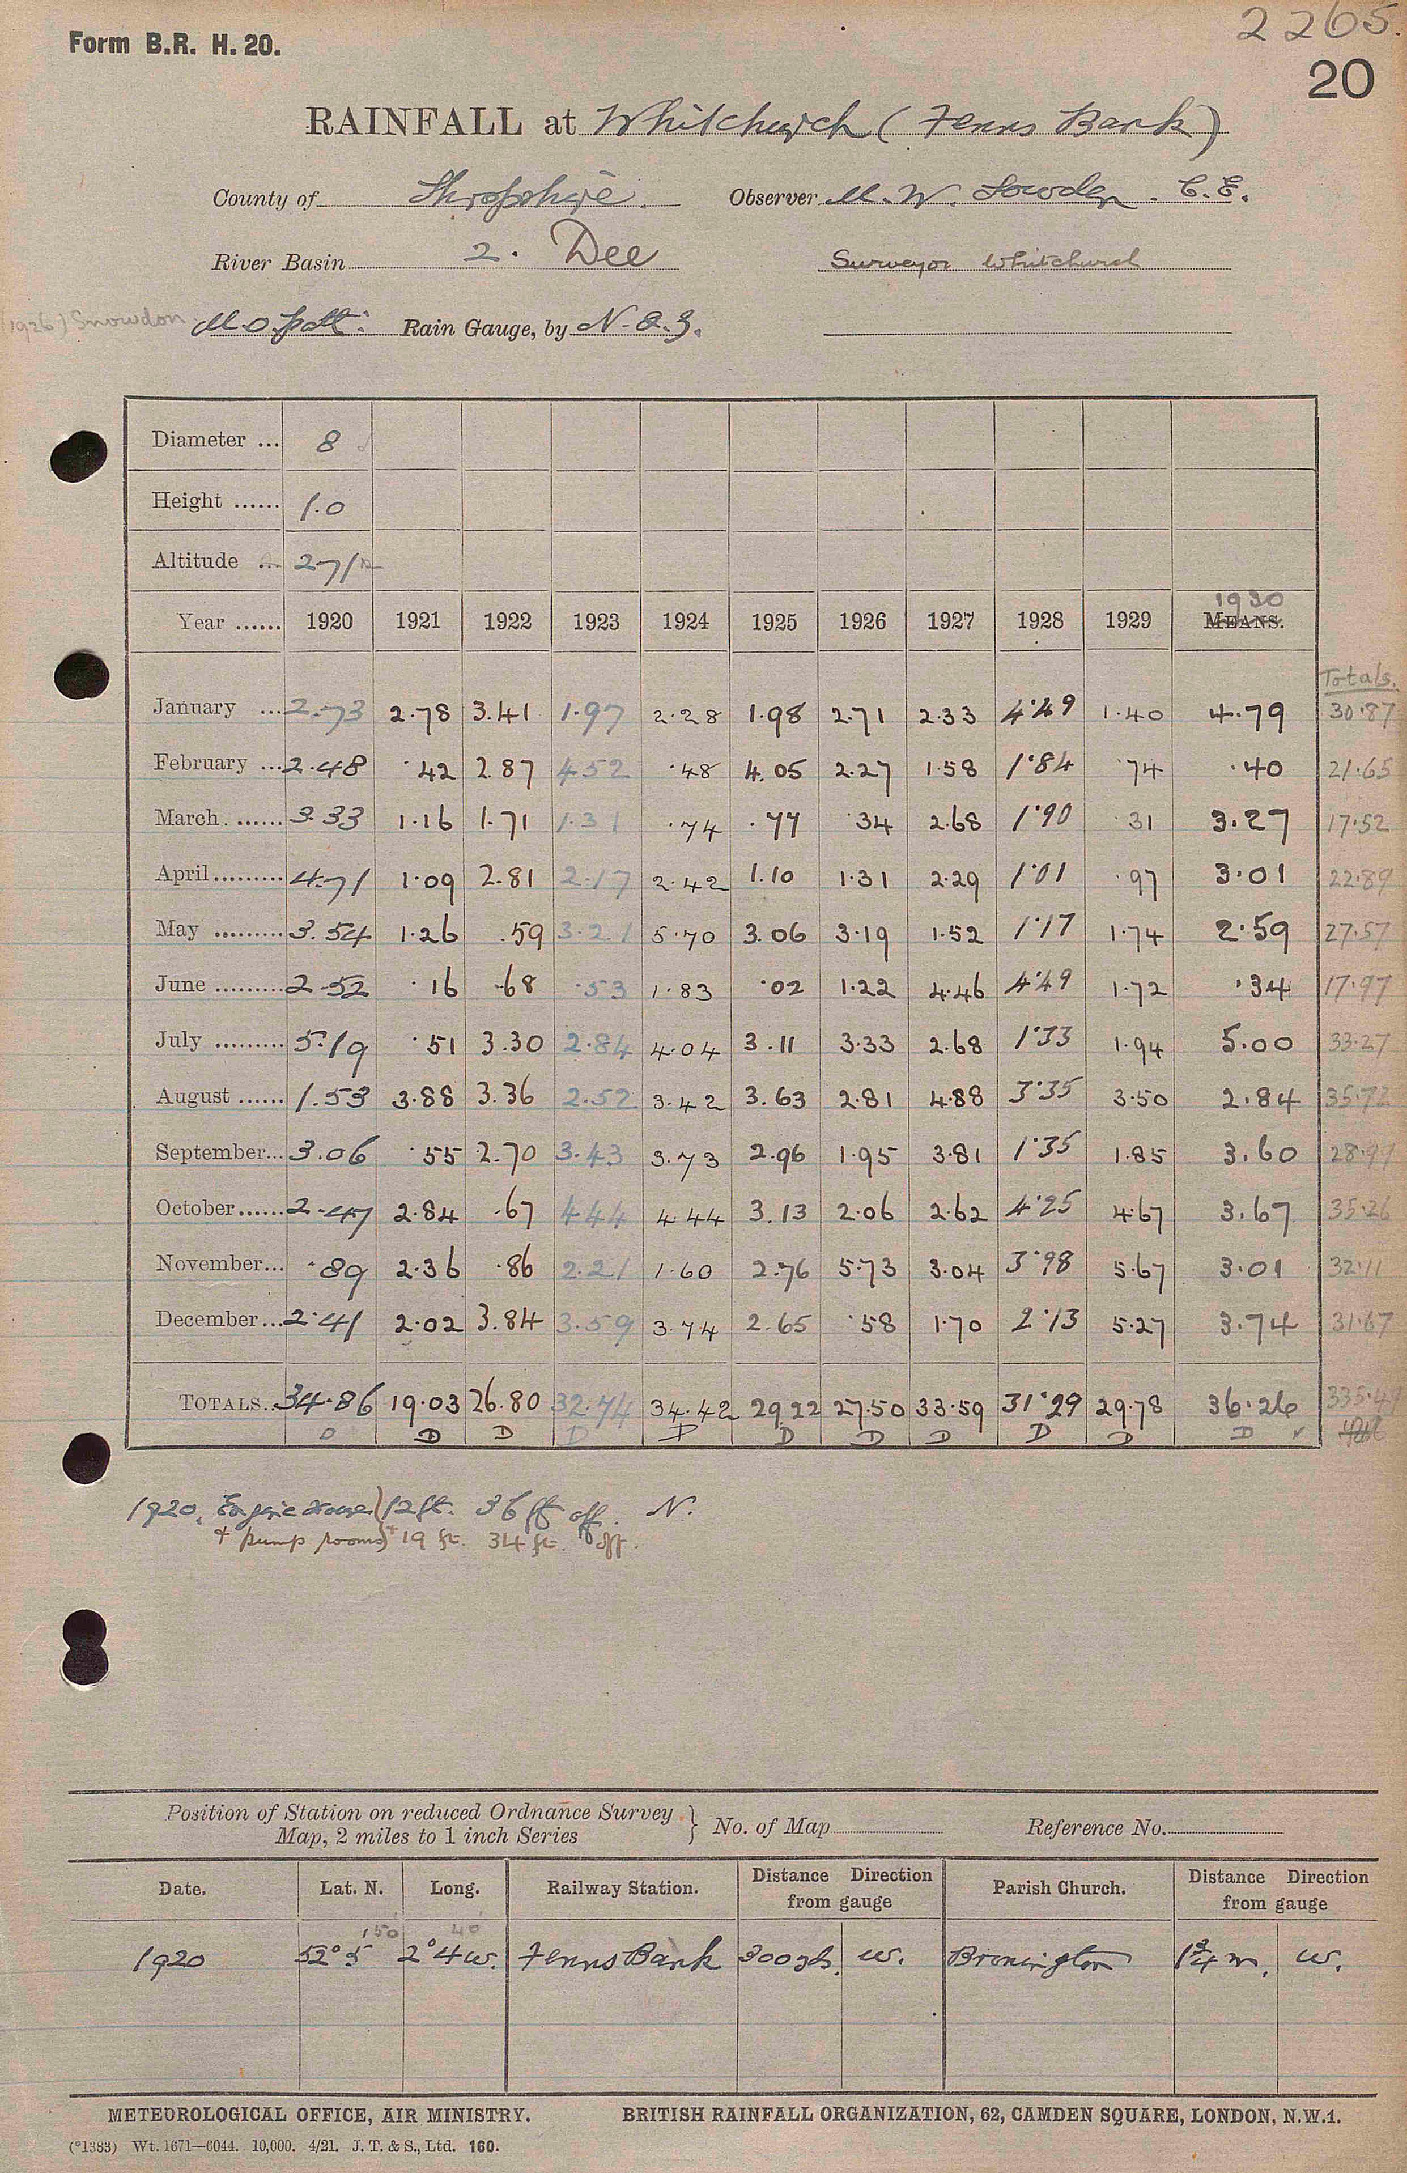 2265.
Form B.R. H. 20.
20
RAINFALL at Whitchurch (Fenns Bank)
County of Shropshire. Observer M. W. Lowden. C.E.
River Basin 2. Dee Surveyor Whitchurch
(1926) Snowdon M.O. patt: Rain Gauge, by N. & Z.
Diameter ... 8
Height ...... 1.0
Altitude ... 271
1930
Year ...... 1920 1921 1922 1923 1924 1925 1926 1927 1928 1929 MEANS.
Totals.
January ... 2.73 2.78 3.41 1.97 2.28 1.98 2.71 2.33 4.49 1.40 4.79 30.87
February ... 2.48 .42 2.87 4.52 .48 4.05 2.27 1.58 1.84 .74 .40 21.65
March ...... 3.33 1.16 1.71 1.31 .74 .77 .34 2.68 1.90 .31 3.27 17.52
April ......... 4.71 1.09 2.81 2.17 2.42 1.10 1.31 2.29 1.01 .97 3.01 22.89
May ......... 3.54 1.26 .59 3.21 5.70 3.06 3.19 1.52 1.17 1.74 2.59 27.57
June ......... 2.52 .16 .68 .53 1.83 .02 1.22 4.46 4.49 1.72 .34 17.97
July ......... 5.19 .51 3.30 2.84 4.04 3.11 3.33 2.68 1.33 1.94 5.00 33.27
August ...... 1.53 3.88 3.36 2.52 3.42 3.63 2.81 4.88 3.35 3.50 2.84 35.72
September... 3.06 .55 2.70 3.43 3.73 2.96 1.95 3.81 1.35 1.85 3.60 28.99
October...... 2.47 2.84 .67 4.44 4.44 3.13 2.06 2.62 4.25 4.67 3.67 35.26
November... .89 2.36 .86 2.21 1.60 2.76 5.73 3.04 3.98 5.67 3.01 32.11
December... 2.41 2.02 3.84 3.59 3.74 2.65 .58 1.70 2.13 5.27 3.74 31.67
TOTALS.. 34.86 19.03 26.80 32.74 34.42 29.22 27.50 33.59 31.29 29.78 36.26 335.49
D D D D D D D D D D D ✓
1920. Engine House } 12 ft. 36 ft off. N.
+ pump rooms } 19 ft. 34 ft. off.
Position of Station on reduced Ordnance Survey
Map, 2 miles to 1 inch Series } No. of Map Reference No.
Date. Lat. N. Long. Railway Station. Distance Direction from gauge Parish Church. Distance Direction from gauge
50 40
1920 52° 5 2° 4 W. Fenns Bank 300 yds. W. Bronington 1¾ m. W.
METEOROLOGICAL OFFICE, AIR MINISTRY. BRITISH RAINFALL ORGANIZATION, 62, CAMDEN SQUARE, LONDON, N.W.1.
(*1383) Wt. 1671—6044. 10,000. 4/21. J. T. & S., Ltd. 160.